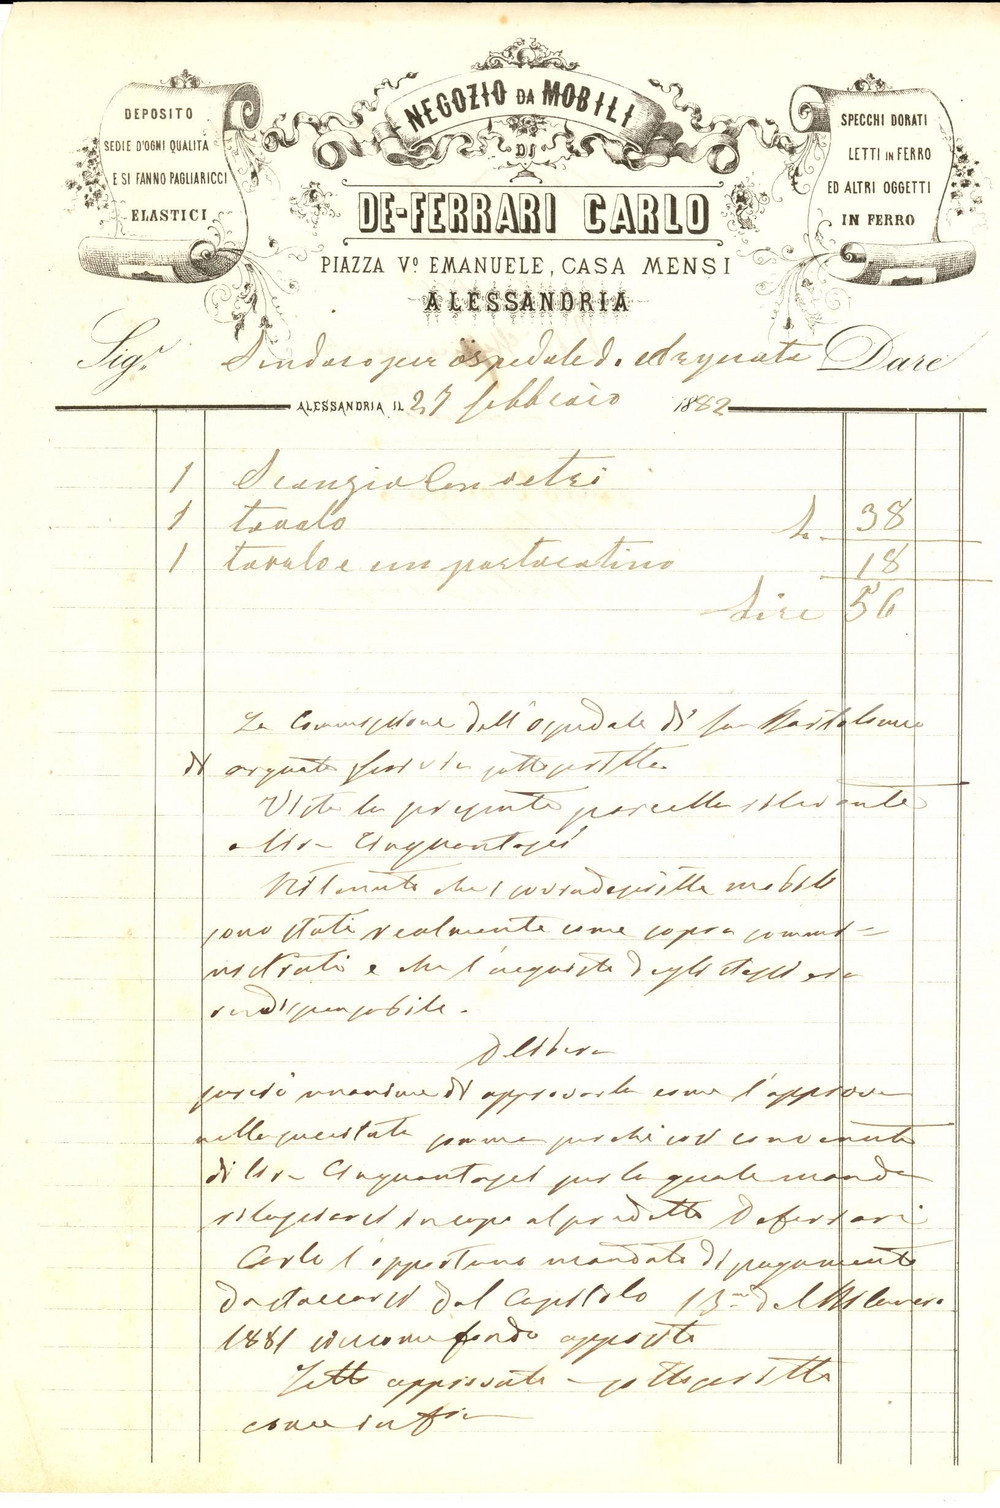 DEPOSITO
SEDIE D'OGNI QUALITÀ
E SI FANNO PAGLIARICCI
ELASTICI
NEGOZIO DA MOBILI
DI
DE-FERRARI CARLO
PIAZZA Vº EMANUELE, CASA MENSI
ALESSANDRIA
SPECCHI DORATI
LETTI IN FERRO
ED ALTRI OGGETTI
IN FERRO
Sigr. Sindaco per ospedale d. Arquata Dare
ALESSANDRIA IL 27 febbraio 1882
1 Scanzia Con vetri
1 tavolo L. 38
1 tavolo e un portacatino 18
Lire 56
La Commissione dell'Ospedale di San Bartolomeo
di arquata Scrivia sottoscritta
Vista la presente parcella rilevante
a Lire Cinquantasei
Ritenuto che i sovradescritti mobili
sono stati realmente come sopra sommi-
nistrati e che l'acquisto degli stessi era
indispensabile.
Delibera
unanime di approvarla come l'approva
nella somma
di Lire Cinquantasei per la quale manda
rilasciarsi in capo al predetto Deferrari
Carlo l'opportuno mandato di pagamento
da staccarsi dal Capitolo 13 del Bilancio
1881 siccome fondo apposito
Letto approvato sottoscritto
come infra